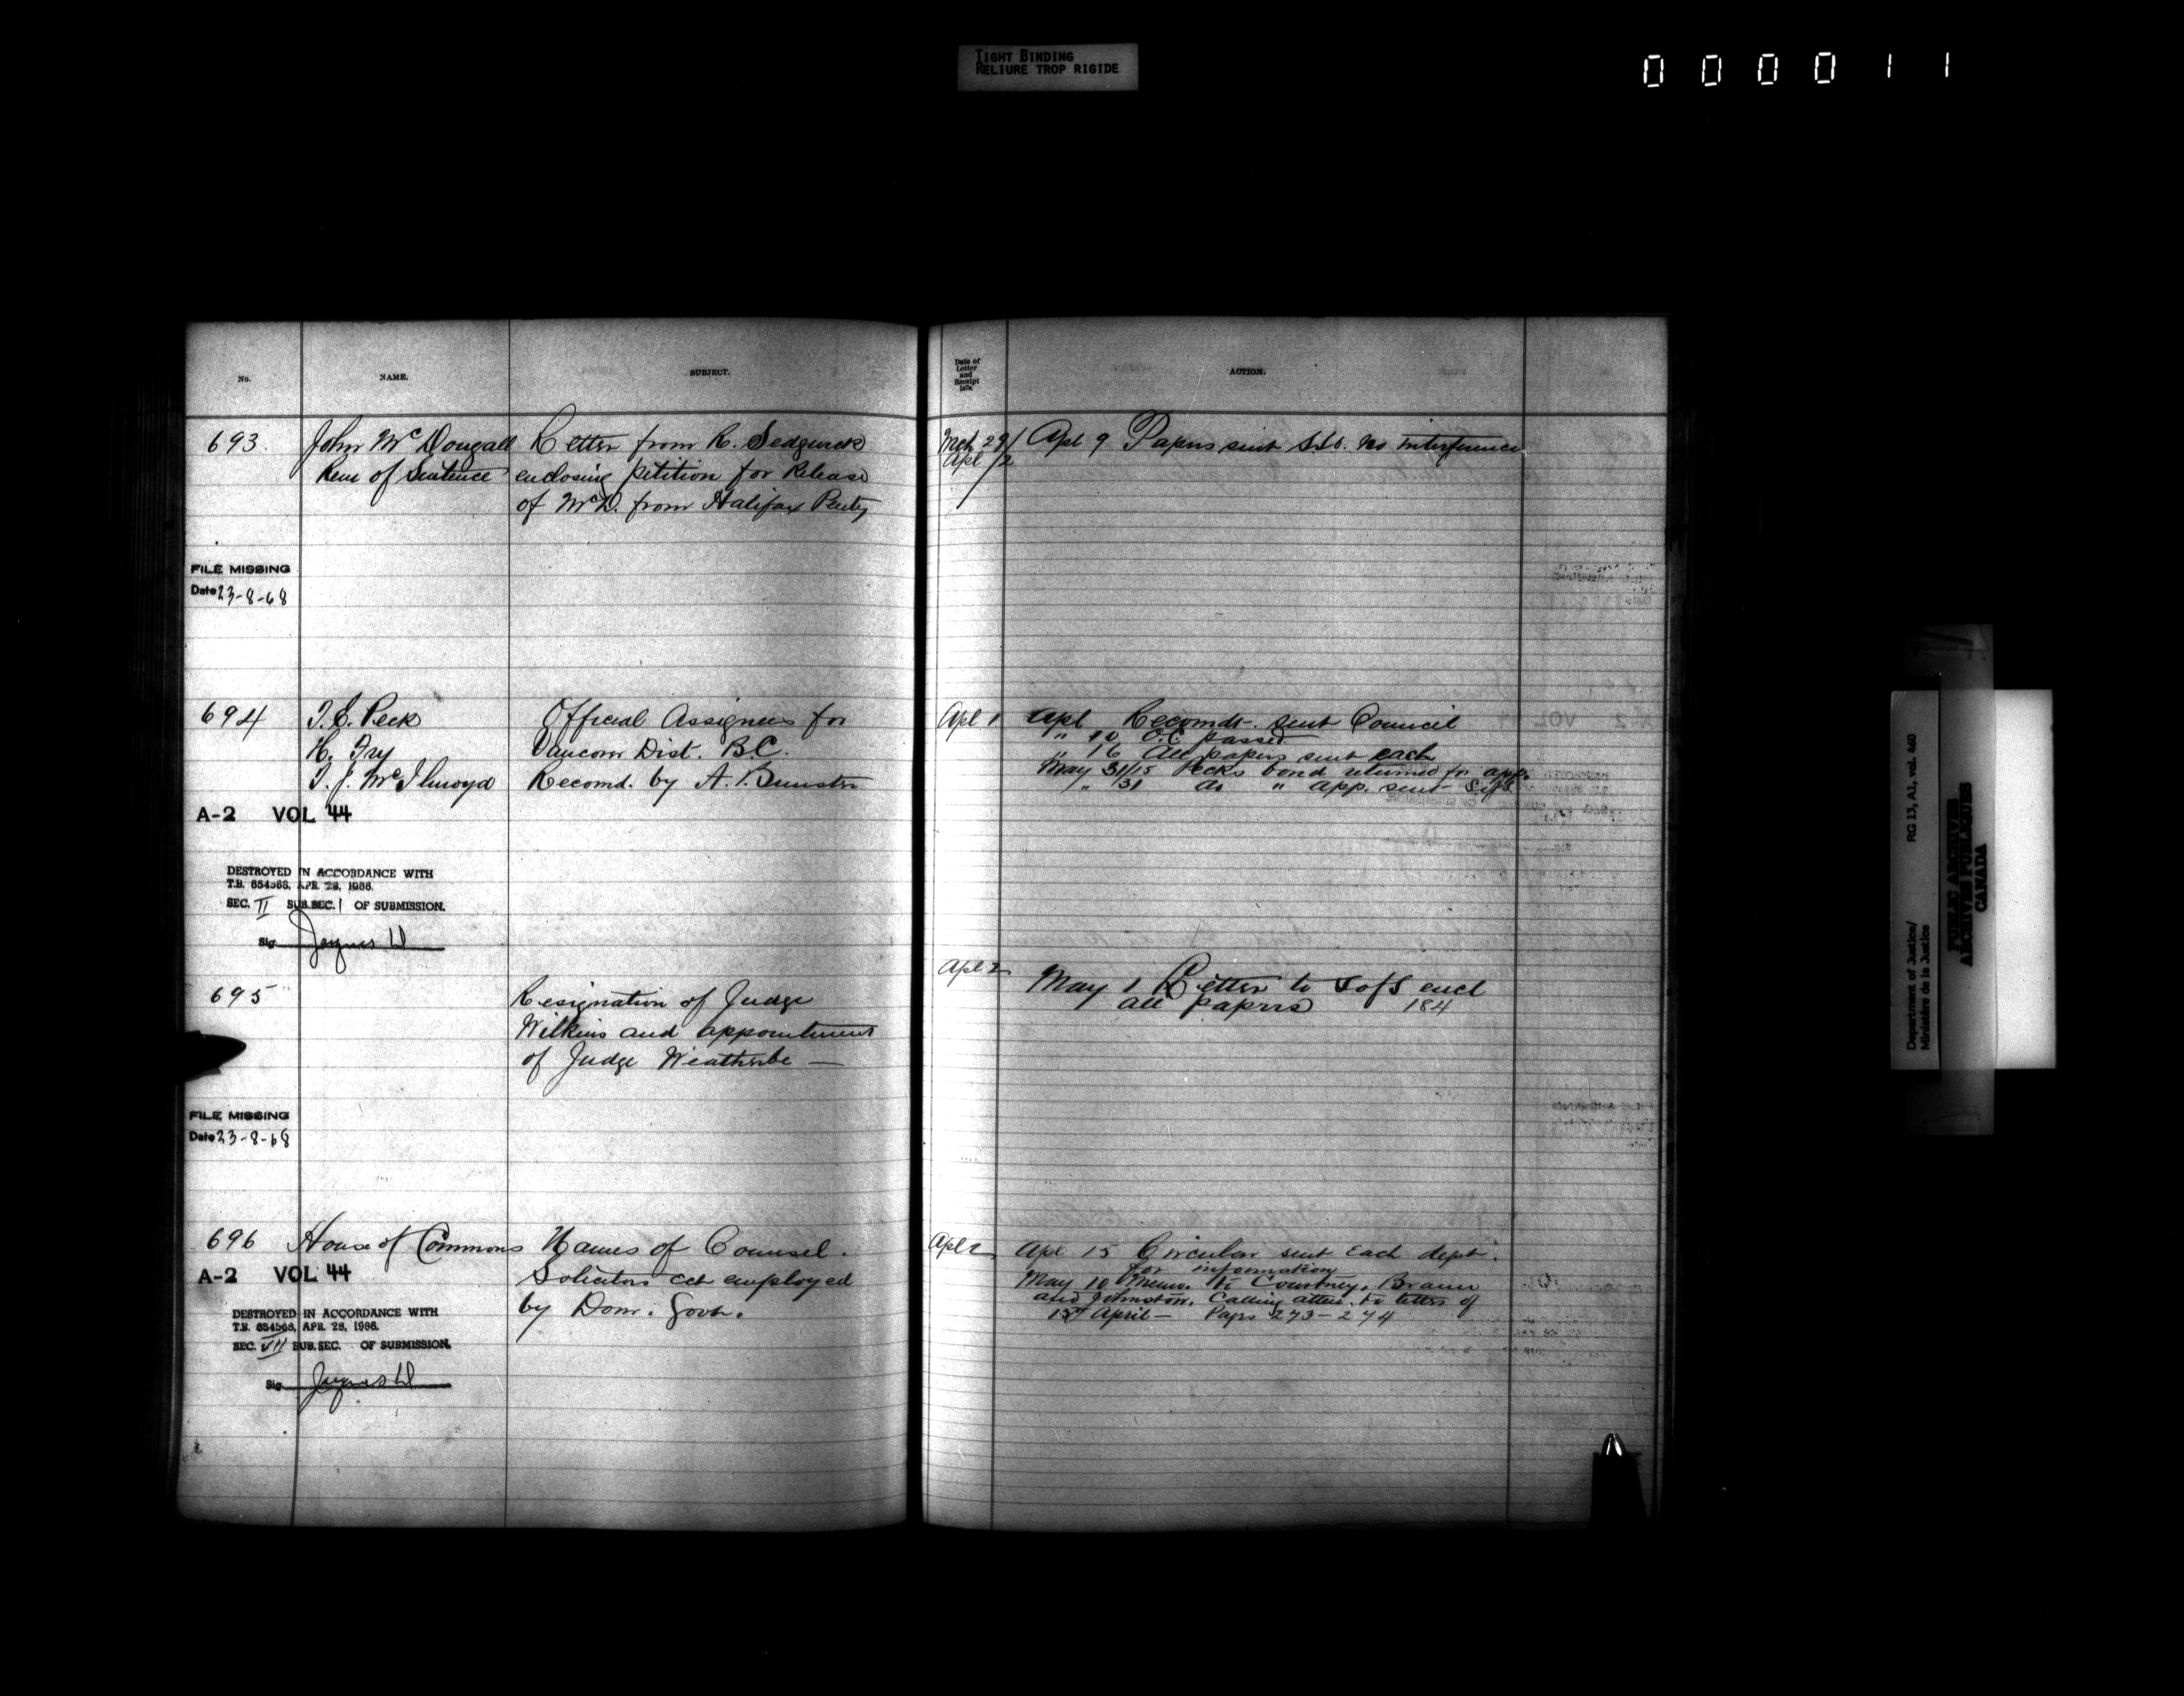 TIGHT BINDING
RELIURE TROP RIGIDE
000011
No.
NAME.
SUBJECT.
Date of
Letter
and
Receipt
1878.
ACTION.
693
John McDougall
Rem of Sentence
Letter from R. Sedgwick
enclosing petition for Release
of McD. from Halifax Penty
Mch 29/
Apl /2
Apl 9 Papers sent S.S.O. No interference
FILE MISSING
Date 23-8-68
694
T. E. Peck
H. Fry
T. J. McIlmoyd
Official Assignees for
Vancouvr Dist. B.C.
Recomd. by A. Bunster
Apl 1
Apl Recomdt. sent Council
" 10 O.C. passed
" 16 All papers sent each
May 31/15 Pecks bond returned for app.
" 31 do " app. sent S. of S.
A-2 VOL 44
DESTROYED IN ACCORDANCE WITH
T.B. 654568, APR. 28, 1966.
SEC. II SUB.SEC. 1 OF SUBMISSION.
Sig.
695
Resignation of Judge
Wilkins and appointment
of Judge Weatherbe —
Apl 2
May 1 Letter to S of S encl
all papers 184
FILE MISSING
Date 23-8-68
696
House of Commons
Names of Counsel.
Solicitors &ct employed
by Dom. Govt.
Apl 2
Apl 15 Circular sent each dept.
for information
May 10 Memo. to Courtney, Braun
and Johnston. Calling atten. to letters of
15th April — Pages 273-274
A-2 VOL 44
DESTROYED IN ACCORDANCE WITH
T.B. 654568, APR. 28, 1966.
SEC. VII SUB.SEC. OF SUBMISSION.
Sig.
Department of Justice/
Ministère de la Justice
RG 13, A1, vol. 460
PUBLIC ARCHIVES
ARCHIVES PUBLIQUES
CANADA